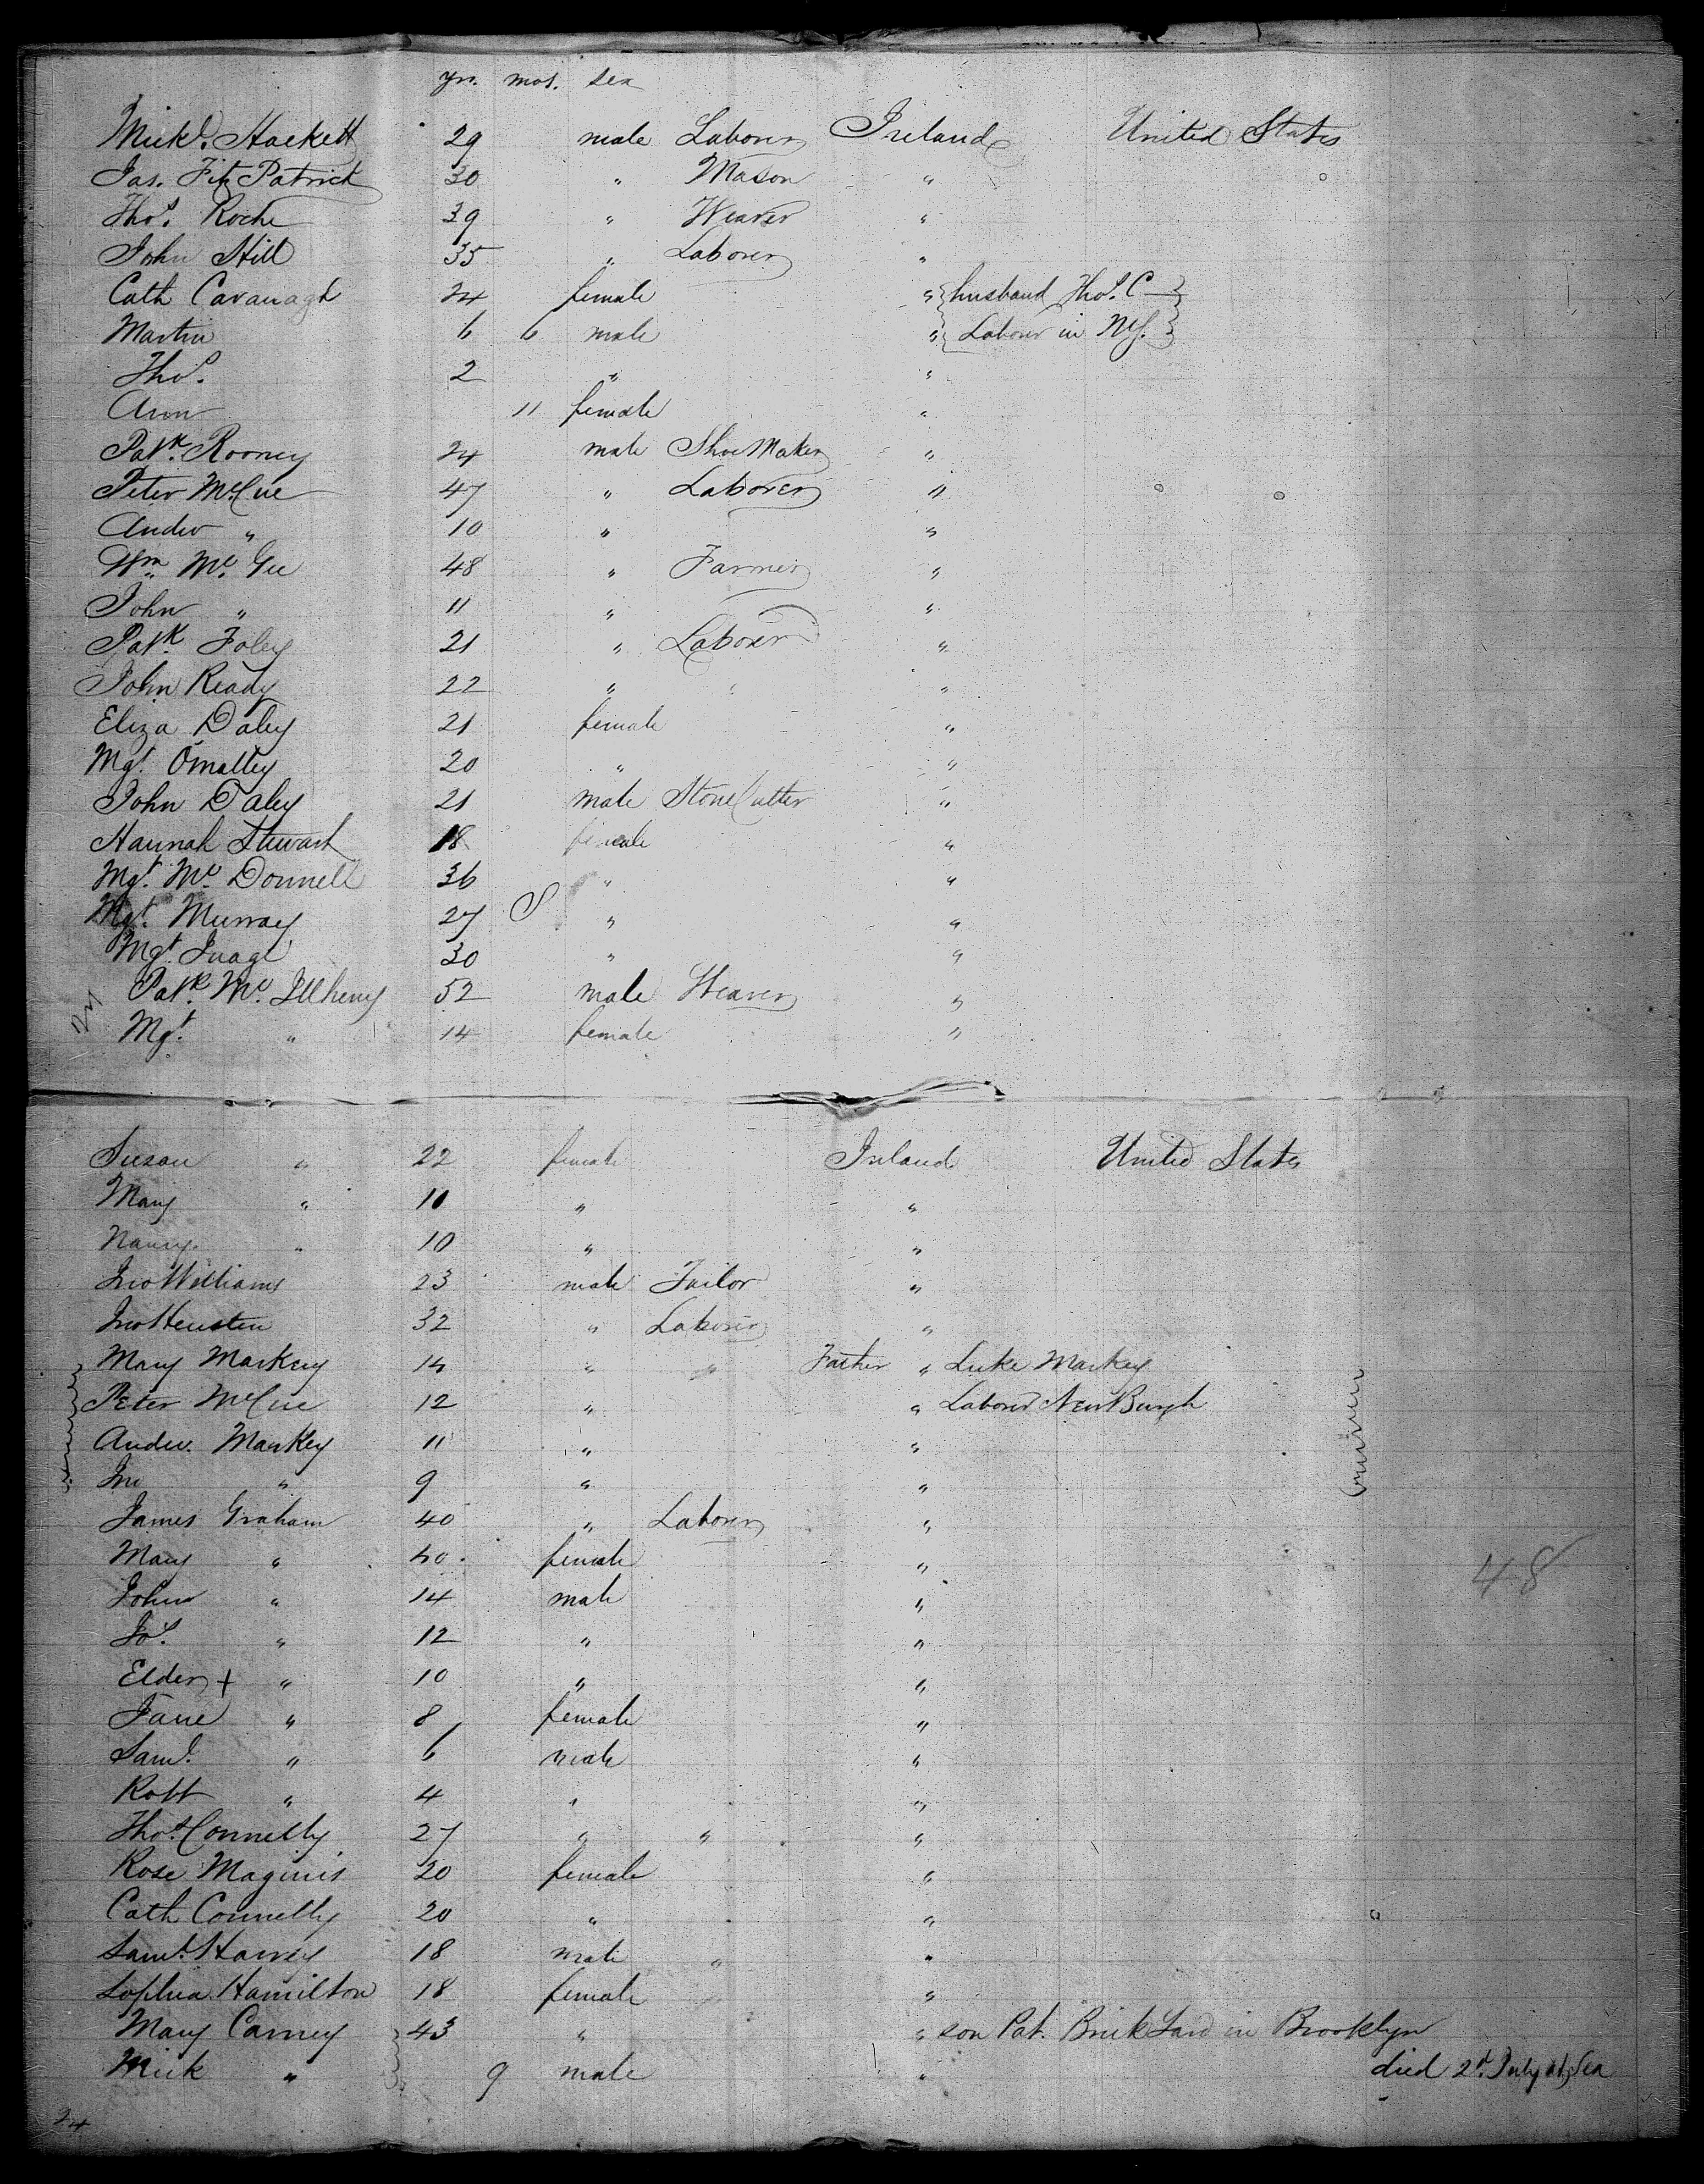 yrs. mos. sex
Mickl. Hackett 29 male Laborer Ireland United States
Jas. FitzPatrick 30 " Mason "
Thos. Roche 39 " Weaver "
John Hill 35 " Laborer "
Cath Cavanagh 24 female " husband Thos. C—
Martin 6 6 male " Laborer in NY.
Thos. 2 " "
Ann 11 female "
Patk. Rooney 24 male ShoeMaker "
Peter McCue 47 " Laborer "
Andw " 10 " "
Wm Mc. Gee 48 " Farmer "
John " 11 " "
Patk Foley 21 " Laborer "
John Ready 22 " " "
Eliza Daley 21 female "
Mgt. O'malley 20 " "
John Daley 21 male StoneCutter "
Hannah Stewart 18 female "
Mgt. Mc. Donnell 36 " "
Mgt. Murray 27 " "
Mgt. 30 " "
Patk. Mc. Illheny 52 male Weaver "
Mgt. " 14 female "
24
Susan " 22 female Ireland United States
Mary " 10 " "
Nancy. " 10 " "
Jno Williams 23 male Tailor "
Jno 32 " Laborer "
Mary Markey 14 " " Father " Luke Markey
Peter McCue 12 " " Laborer NewBurgh
Andw. Markey 11 " "
Jno " 9 " "
James Graham 40 " Laborer "
Mary " 40 female "
John " 14 male "
Jos. " 12 " "
Elder + " 10 " "
Jane " 8 female "
Saml. " 6 male "
Robt " 4 " "
Thos. Connelly 27 " " "
Rose Maginis 20 female "
Cath Connelly 20 " "
Saml. Harvey 18 male " "
Sophia Hamilton 18 female "
Mary Carney 43 " " son Pat. Brick Yard in Brooklyn
Mick " 9 male " died 2d. July at Sea
48
24